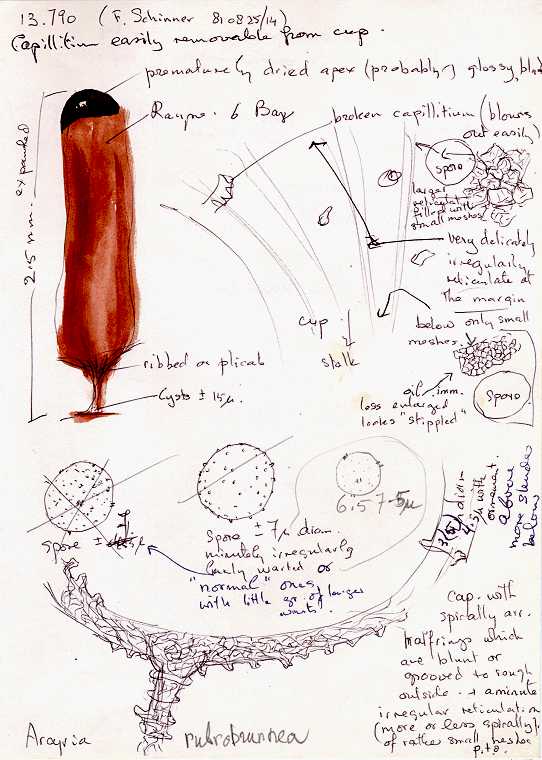 13.790 (F. Schinner 810825/14)
Capillitium easily removable from cup.
prematurely dried apex (probably) glossy,
Rayne. 6 Bay
broken capillitium (blows
out easily)
expanded
2.5 mm.
spore
larger
reticulation
filled with
small meshes
very delicately
irregularly
reticulate at
the margin
cup
stalk
below only small
meshes.
ribbed or plicate
cysts ± 15µ.
oil imm.
less enlarged
looks "stippled"
spore
6.5-7.5µ
spore ±
Spore ± 7µ diam.
minutely irregularly
warted or
"normal" ones,
with little gr. of larger
warts.
diam
with
ornament.
above
more slender
below
Cap. with
spirally arr.
halfrings which
are blunt or
grooved to rough
outside + a minute
irregular reticulation
(more or less spirally)
of rather small meshes
p.t.o.
Arcyria rubrobrunnea